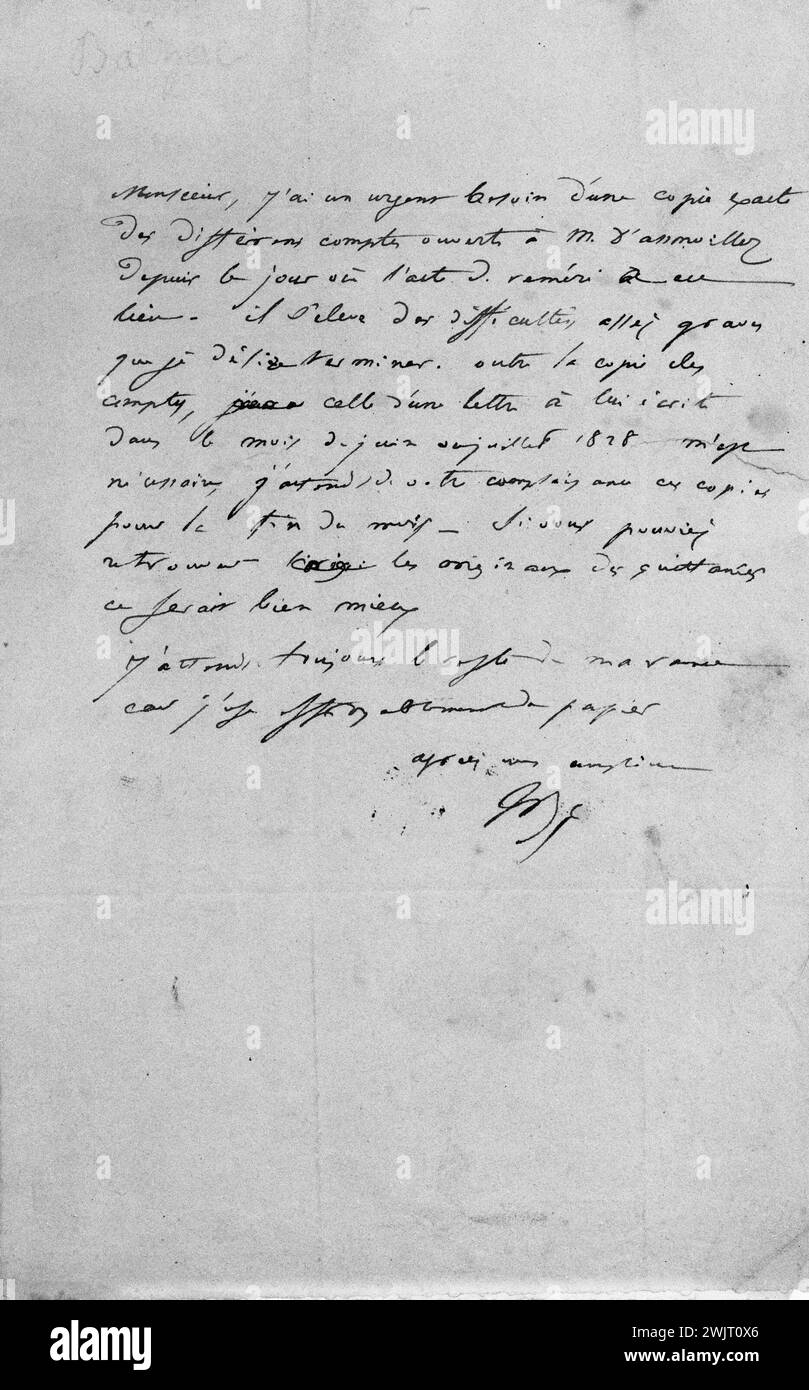 Balzac
5
Monsieur, j'ai un urgent besoin d'une copie exacte
des différens comptes ouverts à M.
depuis le jour où l'acte de réméré a eu
lieu - il s'élève des difficultés assez graves
que je désire terminer. outre la copie des
comptes, celle d'une lettre à lui écrite
dans le mois de juin ou juillet 1828 m'est
nécessaire, j'attends de votre complaisance ces copies
pour la fin du mois - Si vous pouviez
retrouver les originaux des quittances
ce serait bien mieux
j'attends toujours le reste de ma rame
car j'use effroyablement de papier
agréez mes
alamy
alamy
alamy
Image ID: 2WJT0X6
www.alamy.com